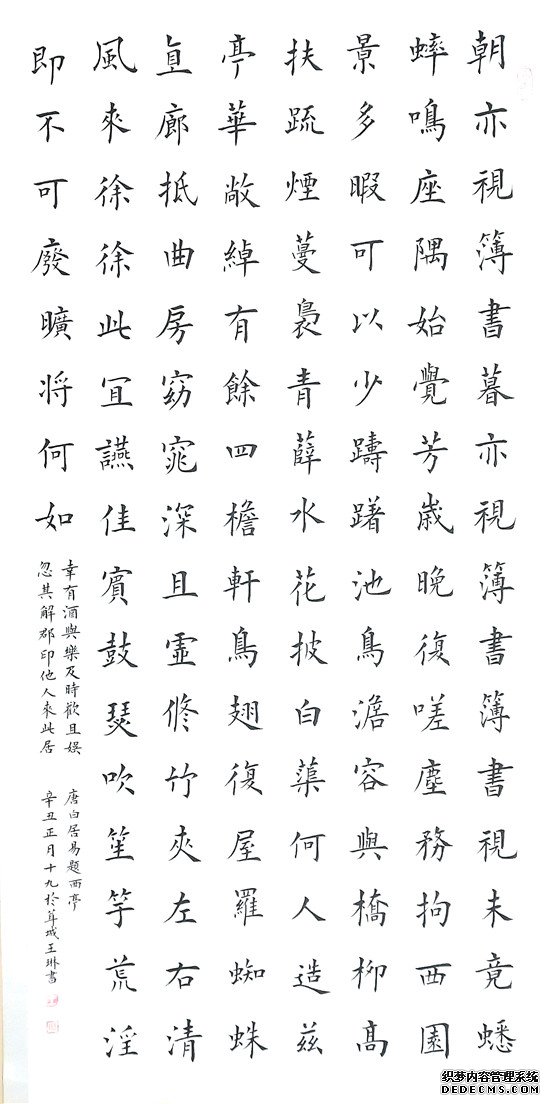 朝亦視簿書暮亦視簿書簿書視未竟蟋
蟀鳴座隅始覺芳歲晚復嗟塵務拘西園
景多暇可以少躊躇池鳥澹容與橋柳高
扶疏煙蔓裊青薜水花披白蕖何人造茲
亭華敞綽有餘四檐軒鳥翅復屋羅蜘蛛
直廊抵曲房窈窕深且虛修竹夾左右清
風來徐徐此宜讌佳賓鼓瑟吹笙竽荒淫
即不可廢曠將何如
幸有酒與樂及時歡且娛
忽其解郡印他人來此居
唐白居易題西亭
辛丑正月十九於茸城王琳書
织梦内容管理系统
DEDECMS.COM